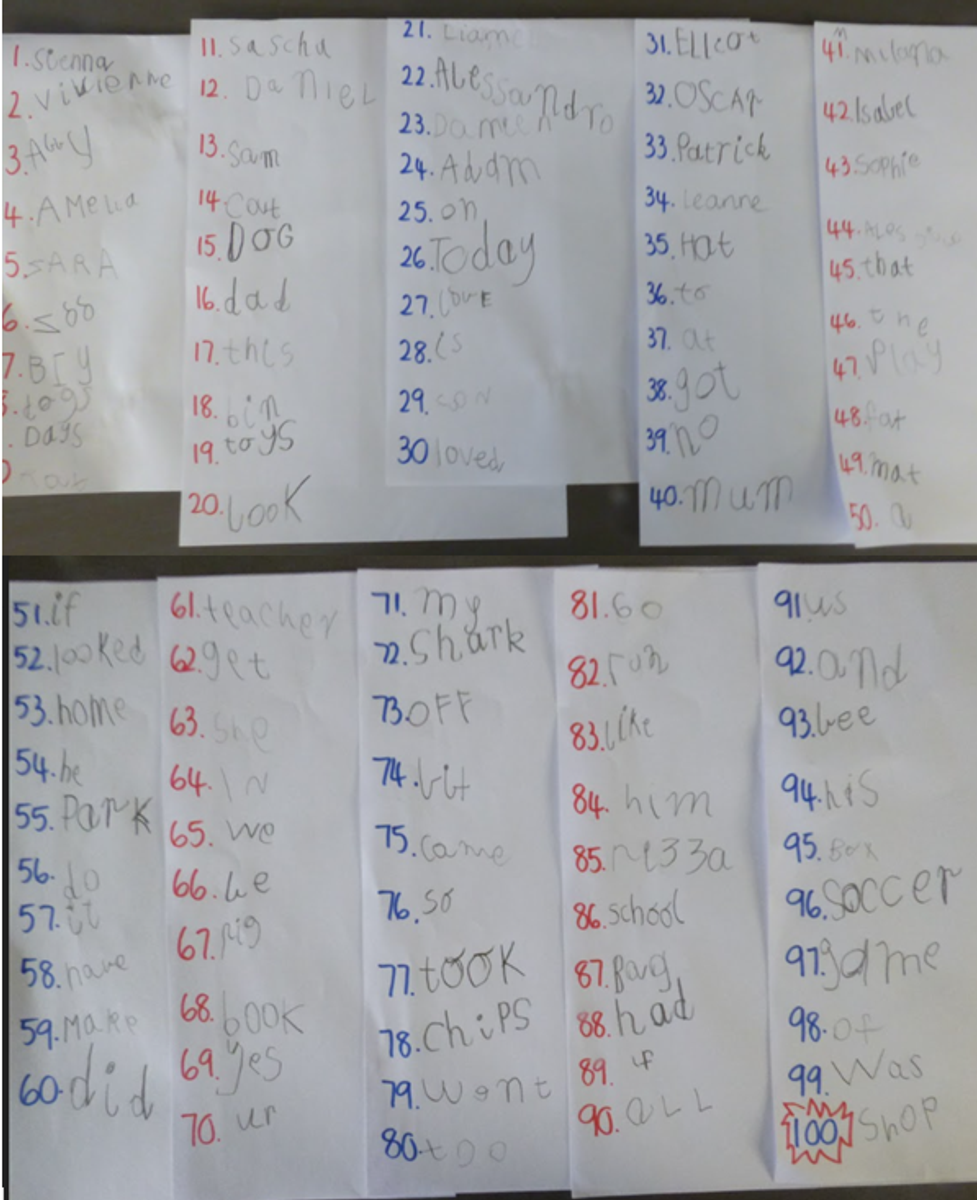 1. Sienna
2. Vivienne
3. Ally
4. AMelia
5. SARA
6.
7. BIY
. togs
. Days
11. Sascha
12. DaNieL
13. Sam
14. Cat
15. DOG
16. dad
17. this
18. bin
19. toys
20. LooK
21. Liam
22. ALessandro
23. Damien
24. Adam
25. on
26. Today
27. lovE
28. is
29. can
30 loved
31. ELLeot
32. OSCAr
33. Patrick
34. leanne
35. Hat
36. to
37. at
38. got
39. no
40. mum
41. milana
42. Isabel
43. Sophie
44.
45. that
46. the
47. Play
48. fat
49. mat
50. a
51. if
52. looKed
53. home
54. he
55. ParK
56. do
57. it
58. have
59. MaKe
60. did
61. teacher
62. get
63. She
64. IN
65. we
66. be
67. pig
68. booK
69. yes
70. ur
71. my
72. Shark
73. oFF
74. bit
75. came
76. so
77. tooK
78. ChiPS
79. went
80. too
81. Go
82. run
83. like
84. him
85.
86. school
87. Bag
88. had
89. up
90. aLL
91. us
92. and
93. bee
94. hiS
95. Box
96. Soccer
97. game
98. of
99. Was
100 ShoP